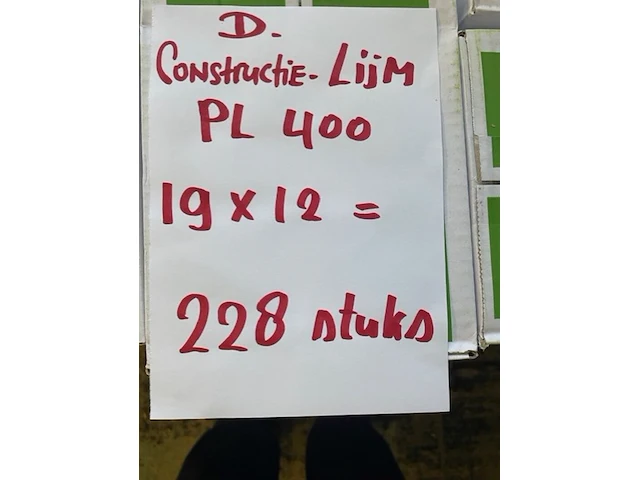 D.
Constructie- Lijm
PL 400
19 x 12 =
228 stuks